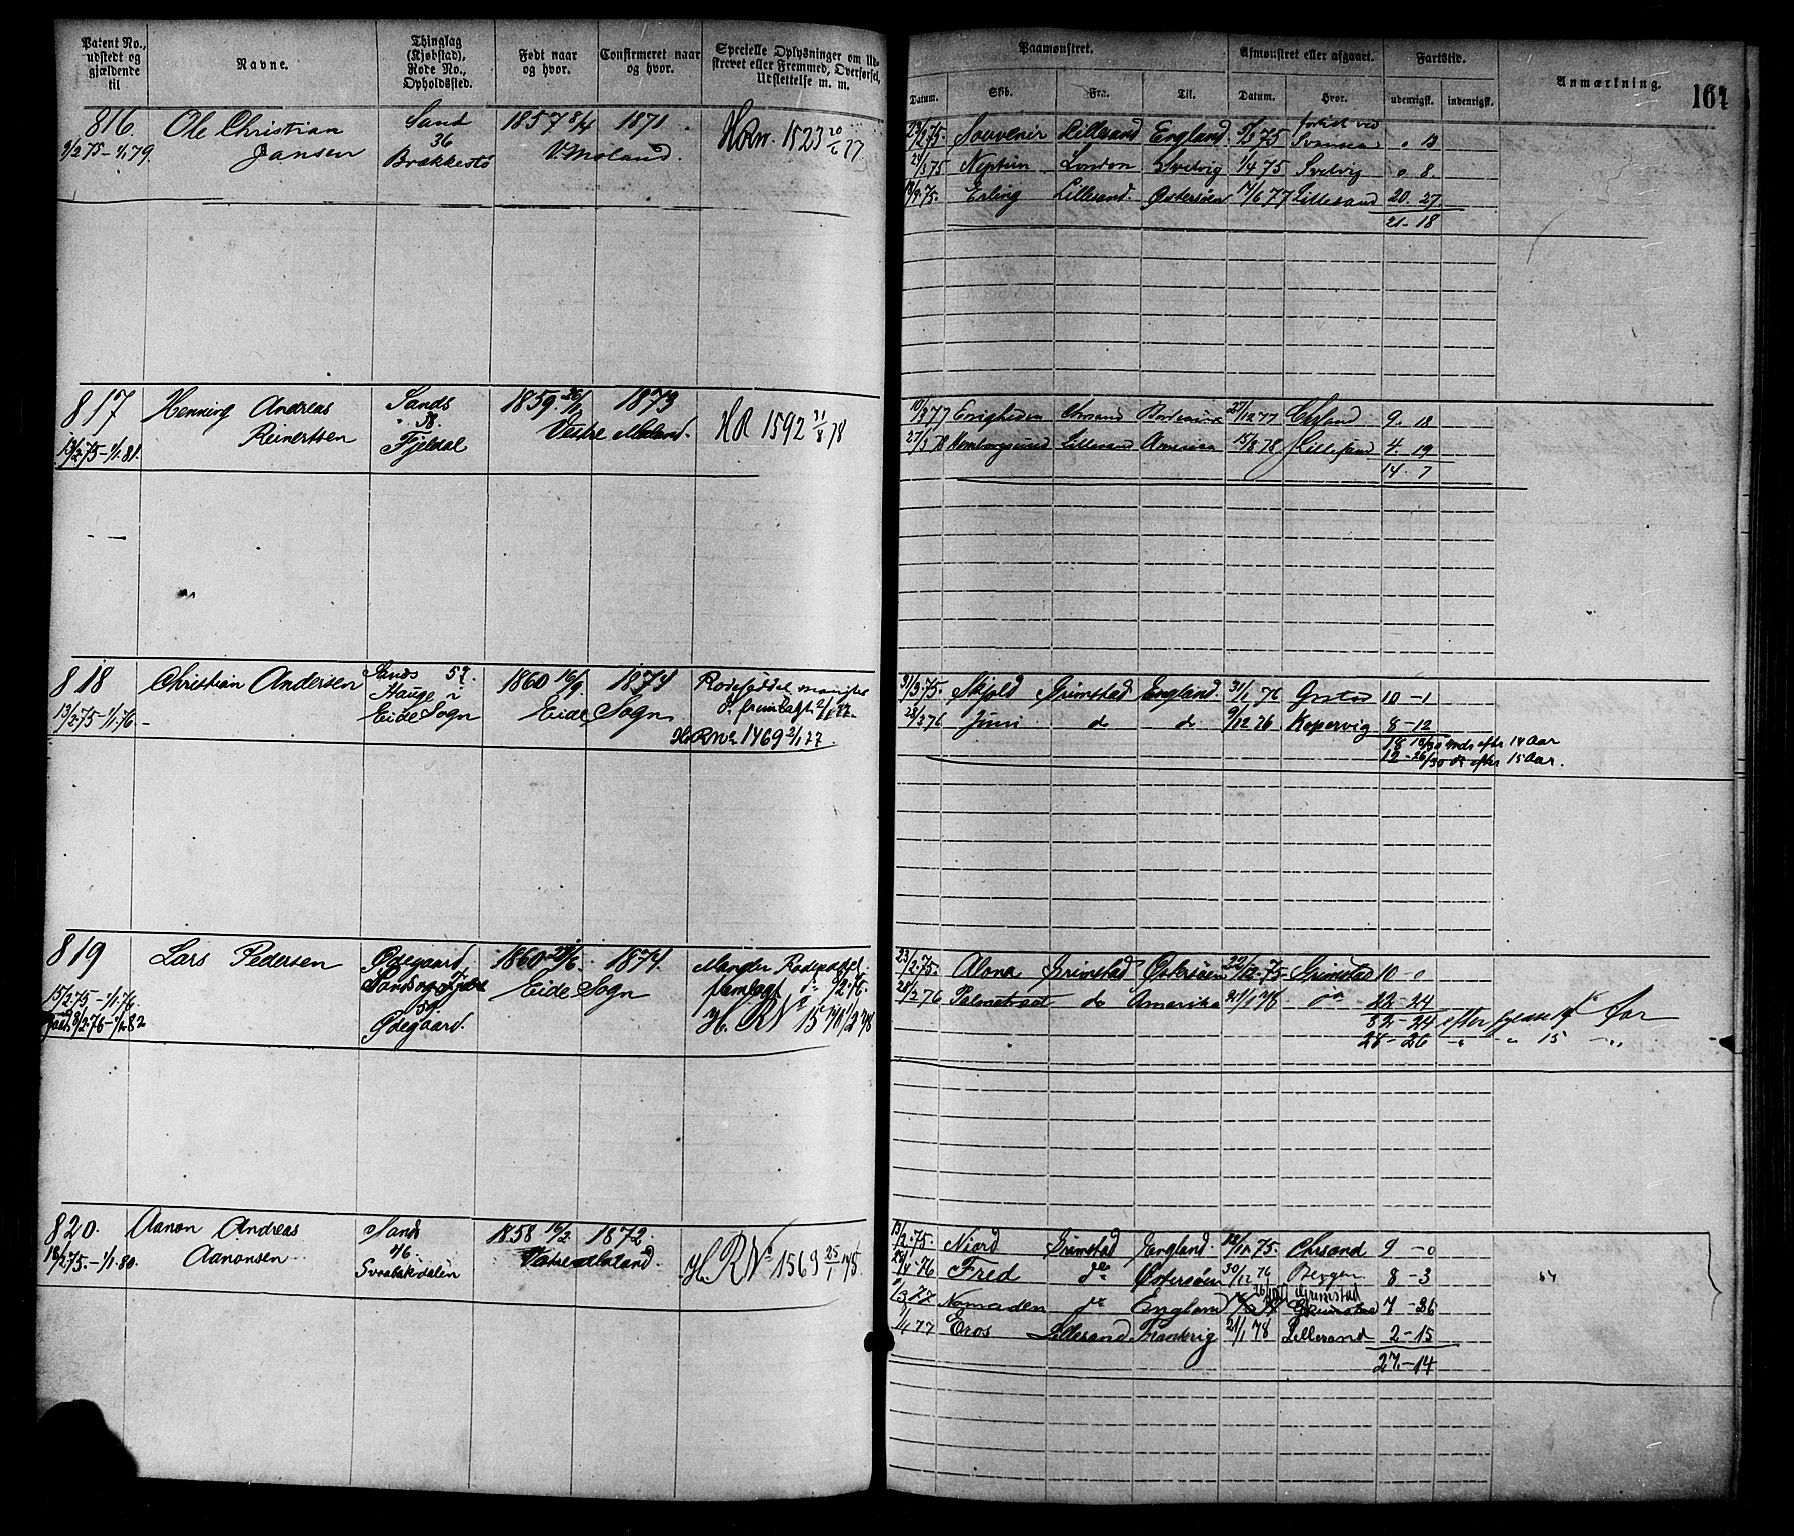 Patent No., udstedt og gjældende til
Navne.
Thinglag (Kjøbstad), Rode No., Opholdssted.
Født naar og hvor.
Confirmeret naar og hvor.
Specielle Oplysninger om Udskrevet eller Fremmed, Overførsel, Udslettelse m. m.
Paamønstret.
Afmønstret eller afgaaet.
Fartstid.
Anmærkning.
164
Datum.
Skib.
Fra.
Til.
Datum.
Hvor.
udenrigsk.
indenrigsk.
816. Ole Christian Sand 1857 8/4 1871
9/2 75 - 1/1 79 Jansen 36 V. Moland.
Brækkestø
H R nr. 1523 20/6 77
23/2 75 Souvenir Lillesand England 75 Svansea 0 13
24/3 75 Neptun London Svelvig 1/4 75 Svelvig 0 8.
75. Erling Lillesand. Østersøen 14/6 77 Lillesand 20. 27
21-18
817 Henning Andreas Sands 1859. 1873
13/2 75 - 1/1 81. Reinertsen 58. Vestre Moland.
Fjeldal
H R 1592 21/8 78
10/3 77 Enigheden 27/12 77 9. 18
27/3 78 Homborgsund Lillesand America 15/8 78 Lillesand 4. 19
14. 7
818 Christian Andersen Sands 52 1860 16/9 1874
13/2 75 - 1/1 76 - Hauge i Eide Sogn
Eide Sogn
Rodeseddel mangler
H R No 1469 2/1 77
31/3 75. Skjold Grimstad England. 31/1 76 Grstad 10 - 1
28/3 76 Juni do do 9/12 76 Kopervig 8 - 12
18 13/30 mdr efter 14 Aar
12 - 26/30 do efter 15 Aar.
819 Lars Pedersen Ødegaard 1860 1874.
15/2 75 - 1/1 76 Eide Sogn
8/2 76 - 1/1 82 Ødegaard.
Mangler Rodeseddel.
fremlagt 8/2 76.
H. R No 1570 1/2 78
23/2 75. Alona Grimstad Østersøen 22/12 75 Grimstad 10 - 0
28/2 76 do Amerika 21/1 78 do 22 - 24
32 - 24 efter fyldte 14 Aar
28 - 26 - " - " 15 - " -
820. Aanon Andreas Sand 1858 16/2 1872.
18/2 75. - 1/1 80. Aanonsen 46 Vestre Moland.
Svaabekdalen
H. R No 1569 25/1 78.
13/2 75. Njord Grimstad England. 75. Chrsand 9 - 0
76 Fred do Østersøen 30/12 76 Bergen 8 - 3
77 Nomaden do England Grimstad 7 - 26
77 Eros Lillesand Frankrig 21/1 78 Lillesand 2 - 15
27 - 14